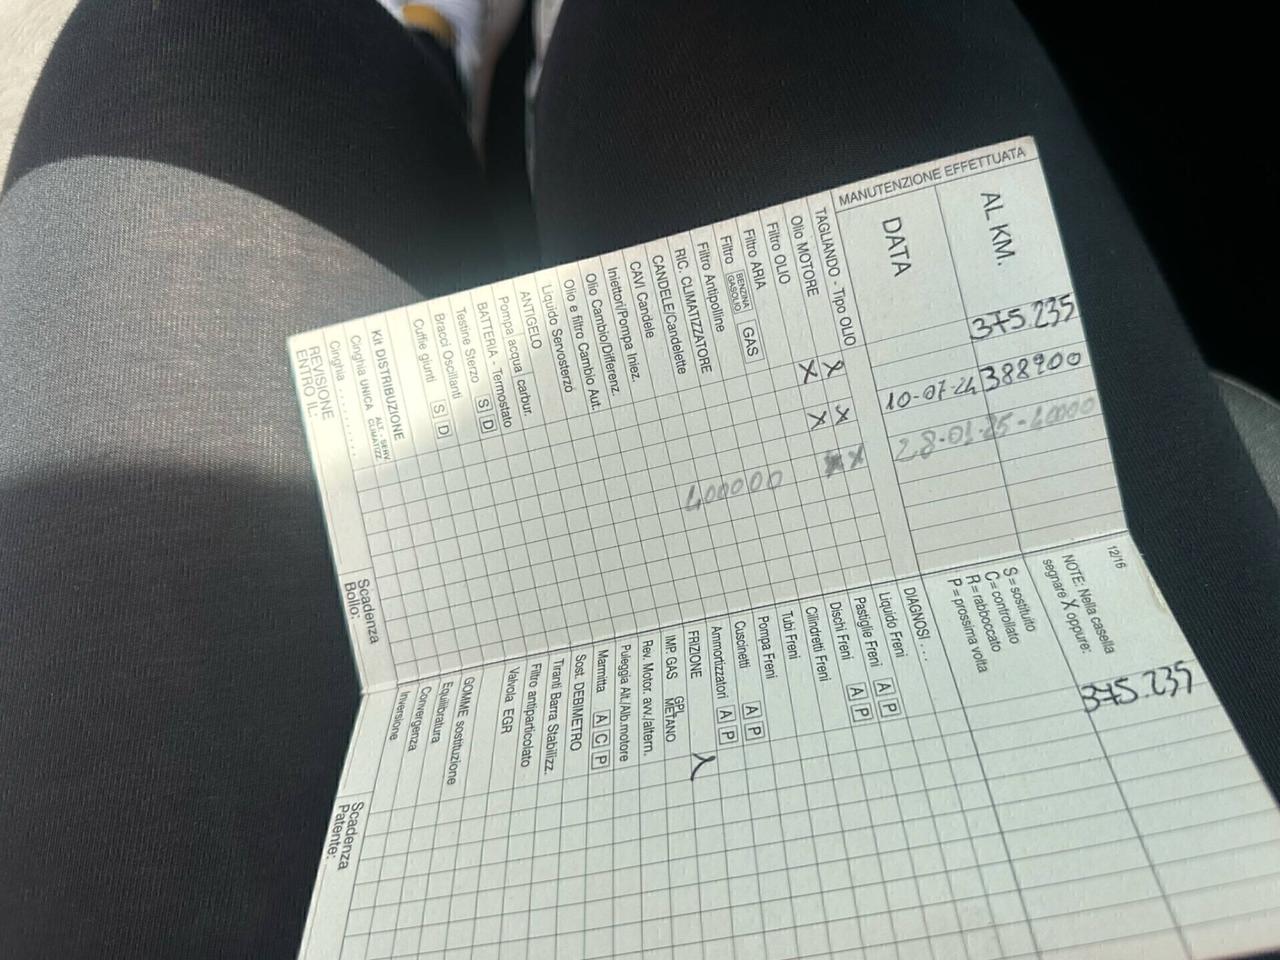 MANUTENZIONE EFFETTUATA
AL KM. 375.235 388900
DATA 10-07-24
TAGLIANDO - Tipo OLIO X X X
Olio MOTORE X X
Filtro OLIO
Filtro ARIA
Filtro BENZINA GASOLIO GAS
Filtro Antipolline
RIC. CLIMATIZZATORE
CANDELE/Candelette
CAVI Candele
Iniettori/Pompa Iniez.
Olio Cambio/Differenz.
Olio e filtro Cambio Aut.
Liquido Servosterzo
ANTIGELO
Pompa acqua carbur.
BATTERIA - Termostato
Testine Sterzo S D
Bracci Oscillanti
Cuffie giunti S D
Kit DISTRIBUZIONE
Cinghia UNICA ALT. - SERV. CLIMATIZZ.
Cinghia ..........
REVISIONE
ENTRO IL:
Scadenza
Bollo:
12/16
NOTE: Nella casella
segnare X oppure:
S = sostituito
C = controllato
R = rabboccato
P = prossima volta
375.235
DIAGNOSI ....
Liquido Freni
Pastiglie Freni A P
Dischi Freni A P
Cilindretti Freni
Tubi Freni
Pompa Freni
Cuscinetti A P
Ammortizzatori A P
FRIZIONE
IMP. GAS GPL METANO
Rev. Motor. avv./altern.
Puleggia Alt./Alb.motore
Marmitta A C P
Sost. DEBIMETRO
Tiranti Barra Stabilizz.
Filtro antiparticolato
Valvola EGR
GOMME sostituzione
Equilibratura
Convergenza
Inversione
Scadenza
Patente: